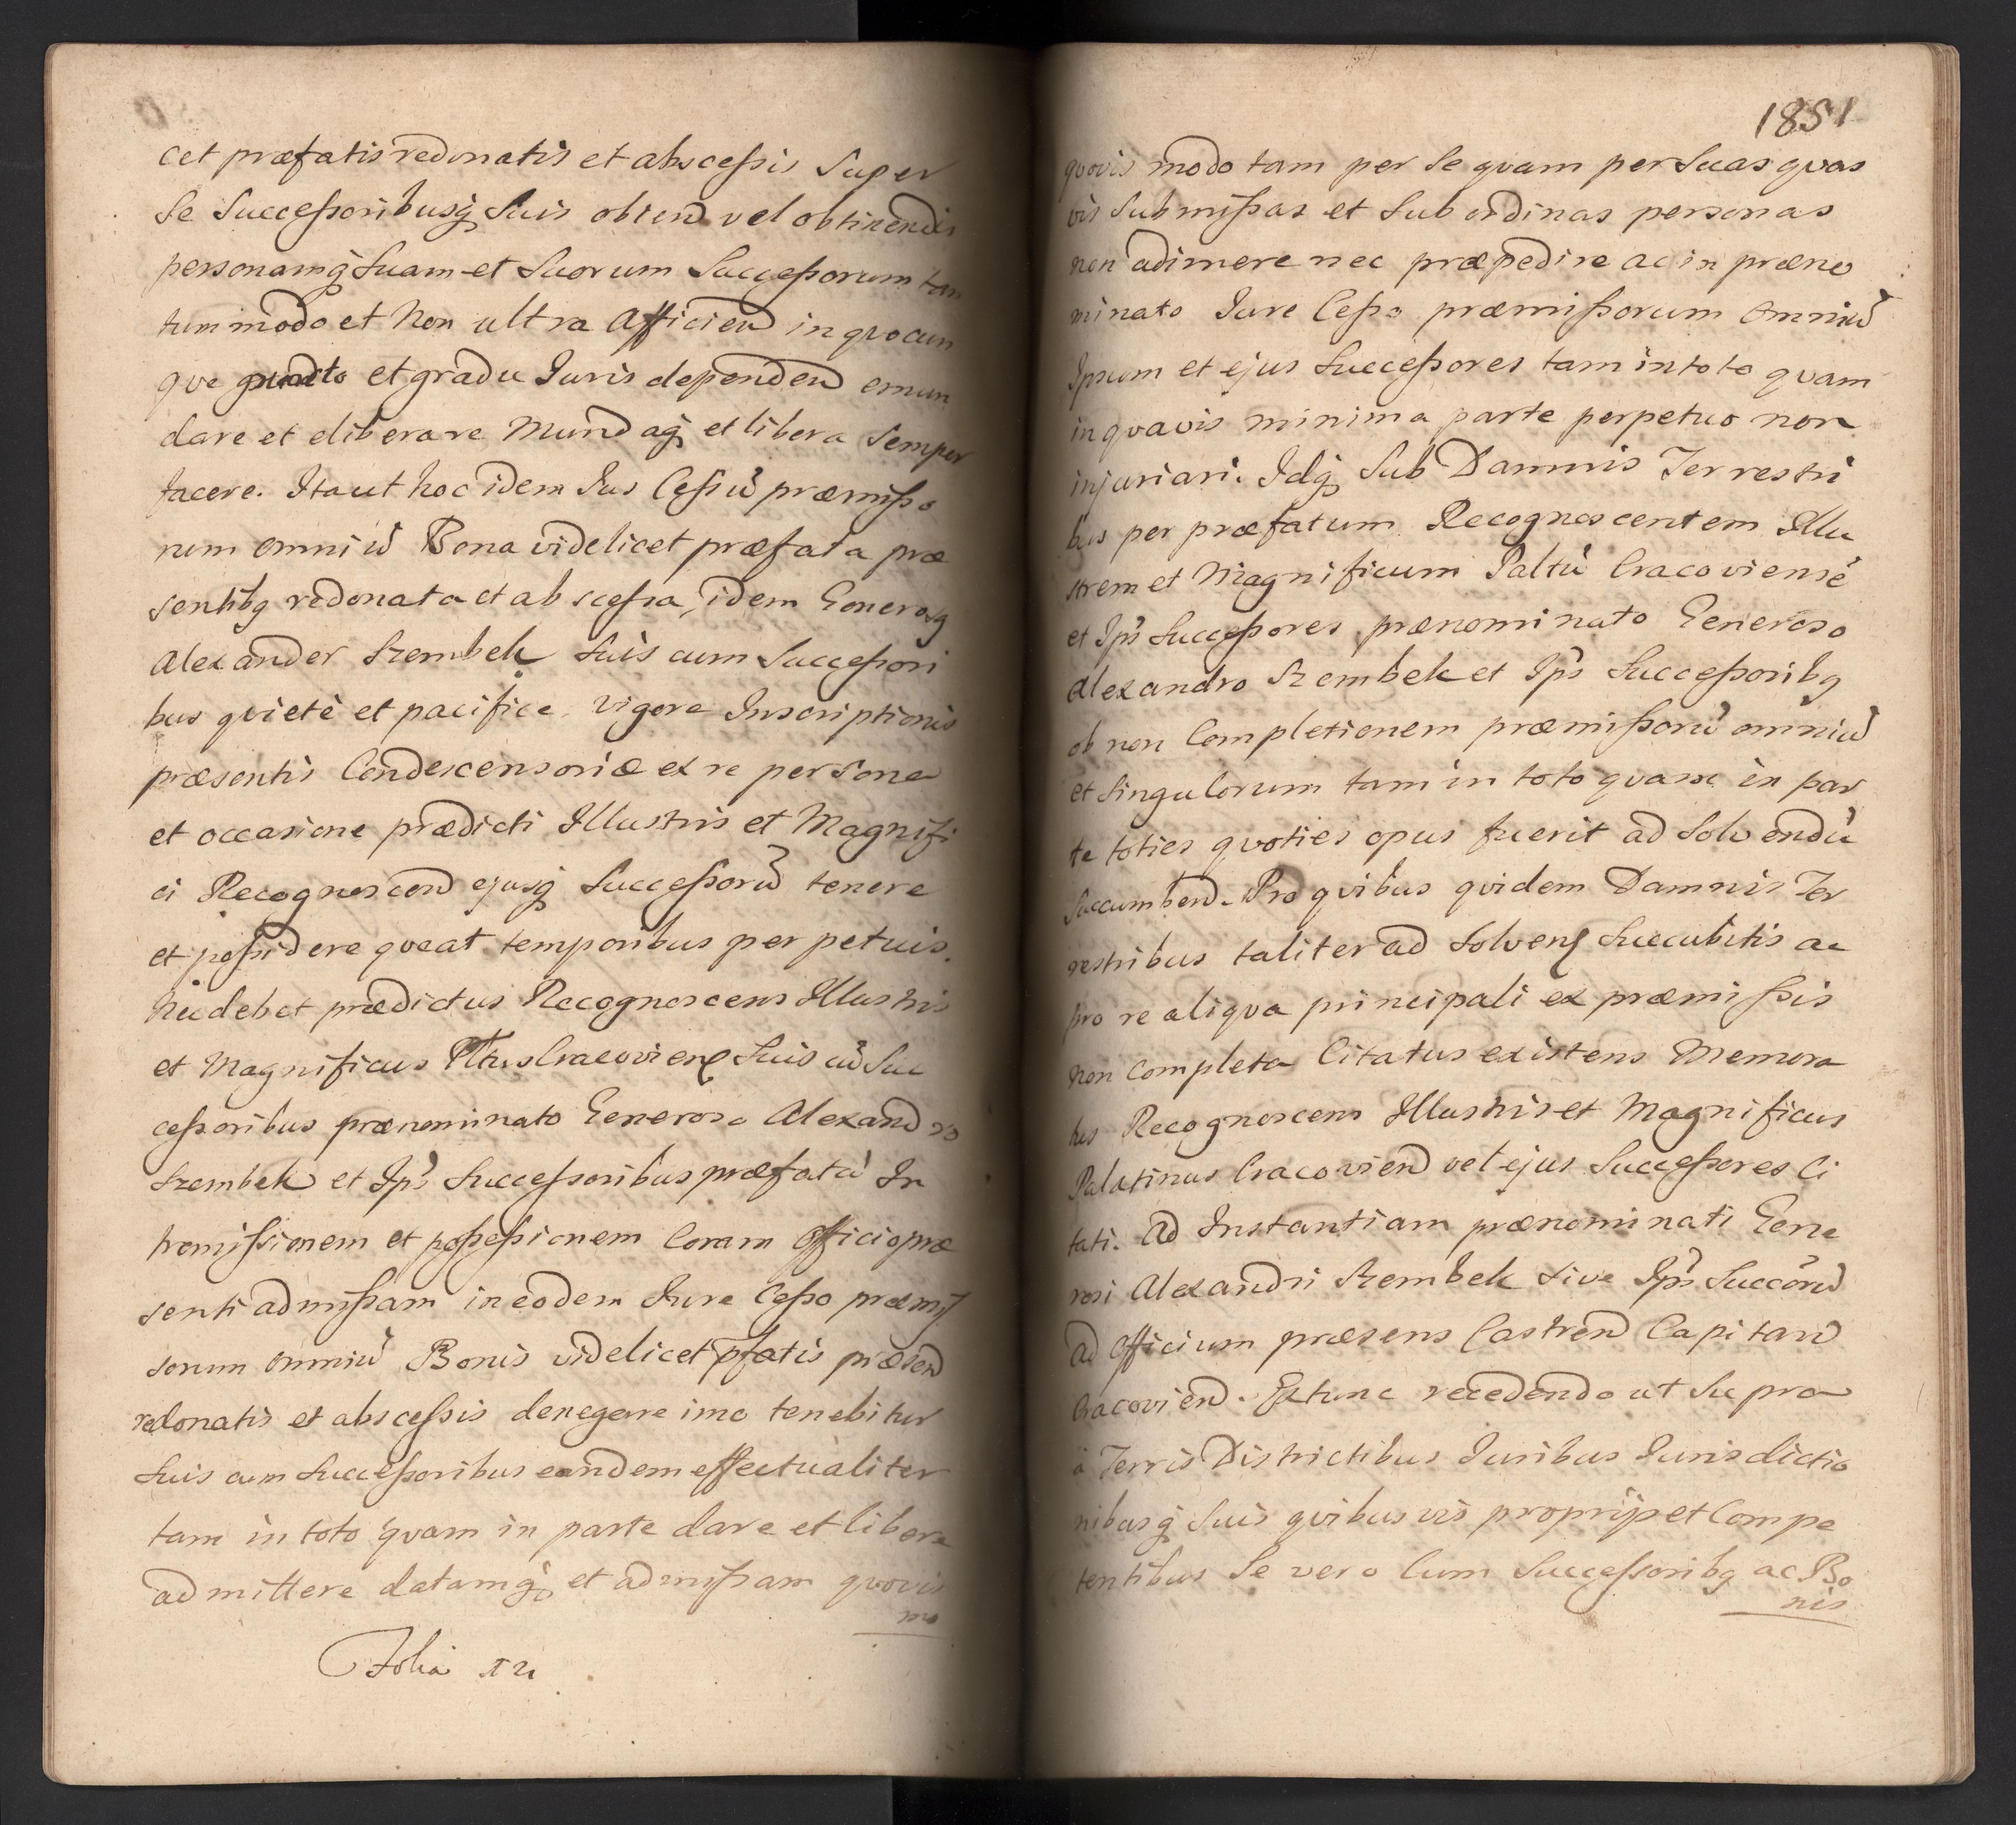 cet præfatis redonatis et abscessis super
se Successoribusq́ suis obtend vel obtinendis
personamq́ suam et suorum Successorum tan
tummodo et non ultra afficiend in quocun
que puncto et gradu Juris dependend emun
dare et eliberare Mund aq́ et libera semper
facere. Itaut hoc idem Jus Cessū præmisso
rum omniū Bona videlicet præfata præ
sentibq redonata et abscessa, idem Generosq
Alexander Szembek suis cum Successori
bus quietè et pacifice vigore Inscriptionis
præsentis Condescensoriæ ex re persona
et occasione prædicti Illustris et Magnifi
ci Recognoscend ejusq́ Successorū tenere
et possidere queat temporibus perpetuis.
hic debet prædictus Recognoscens Illustris
et Magnificus Pltus Cracovien suis cū Suc
cessoribus prænominato Generoso Alexandro
Szembek et Ips Successoribus præfatā In
tromissionem et possessionem Coram Officio præ
senti admissam in eodem Jure Cesso præmis
sorum omniū Bonis videlicet pfatis præsend
redonatis et abscessis denegare imo tenebitur
suis cum Successoribus eandem effectualiter
tam in toto quam in parte dare et libere
admittere datamq́ et admissam quovis
mo
Folia
1851
quovis modo tam per se quam per suas quas
vis submissas et subordinas personas
non adimere nec præpedire ac in præno
minato Jure Cesso præmissorum omniū
Ipsum et ejus Successores tam in toto quam
in quavis minima parte perpetuo non
injuriari. Idq́ sub Damnis Terrestri
bus per præfatum Recognoscentem Illu
strem et Magnificum Paltū Cracoviensē
et Ips Successores prænominato Generoso
Alexandro Szembek et Ips Successoribq
ob non Completionem præmissorū omniū
et singulorum tam in toto quam in par
te toties quoties opus fuerit ad solvendū
succumbend. Pro quibus quidem Damnis Ter
restribus taliter ad solven succubitis ac
pro re aliqua principali ex præmissis
non completa Citatus existens Memora
tus Recognoscens Illustris et Magnificus
Palatinus Cracoviend vel ejus Successores Ci
tati. Ad Instantiam prænominati Gene
rosi Alexandri Szembek sive Ips Succorū
ad officium præsens Castrend Capitand
Cracoviend. Extunc recedendo ut supra
à Terris Districtibus Juribus Jurisdictio
nibusq́ suis quibusvis proprijs et Compe
tentibus se vero Cum Successoribq ac Bo
nis